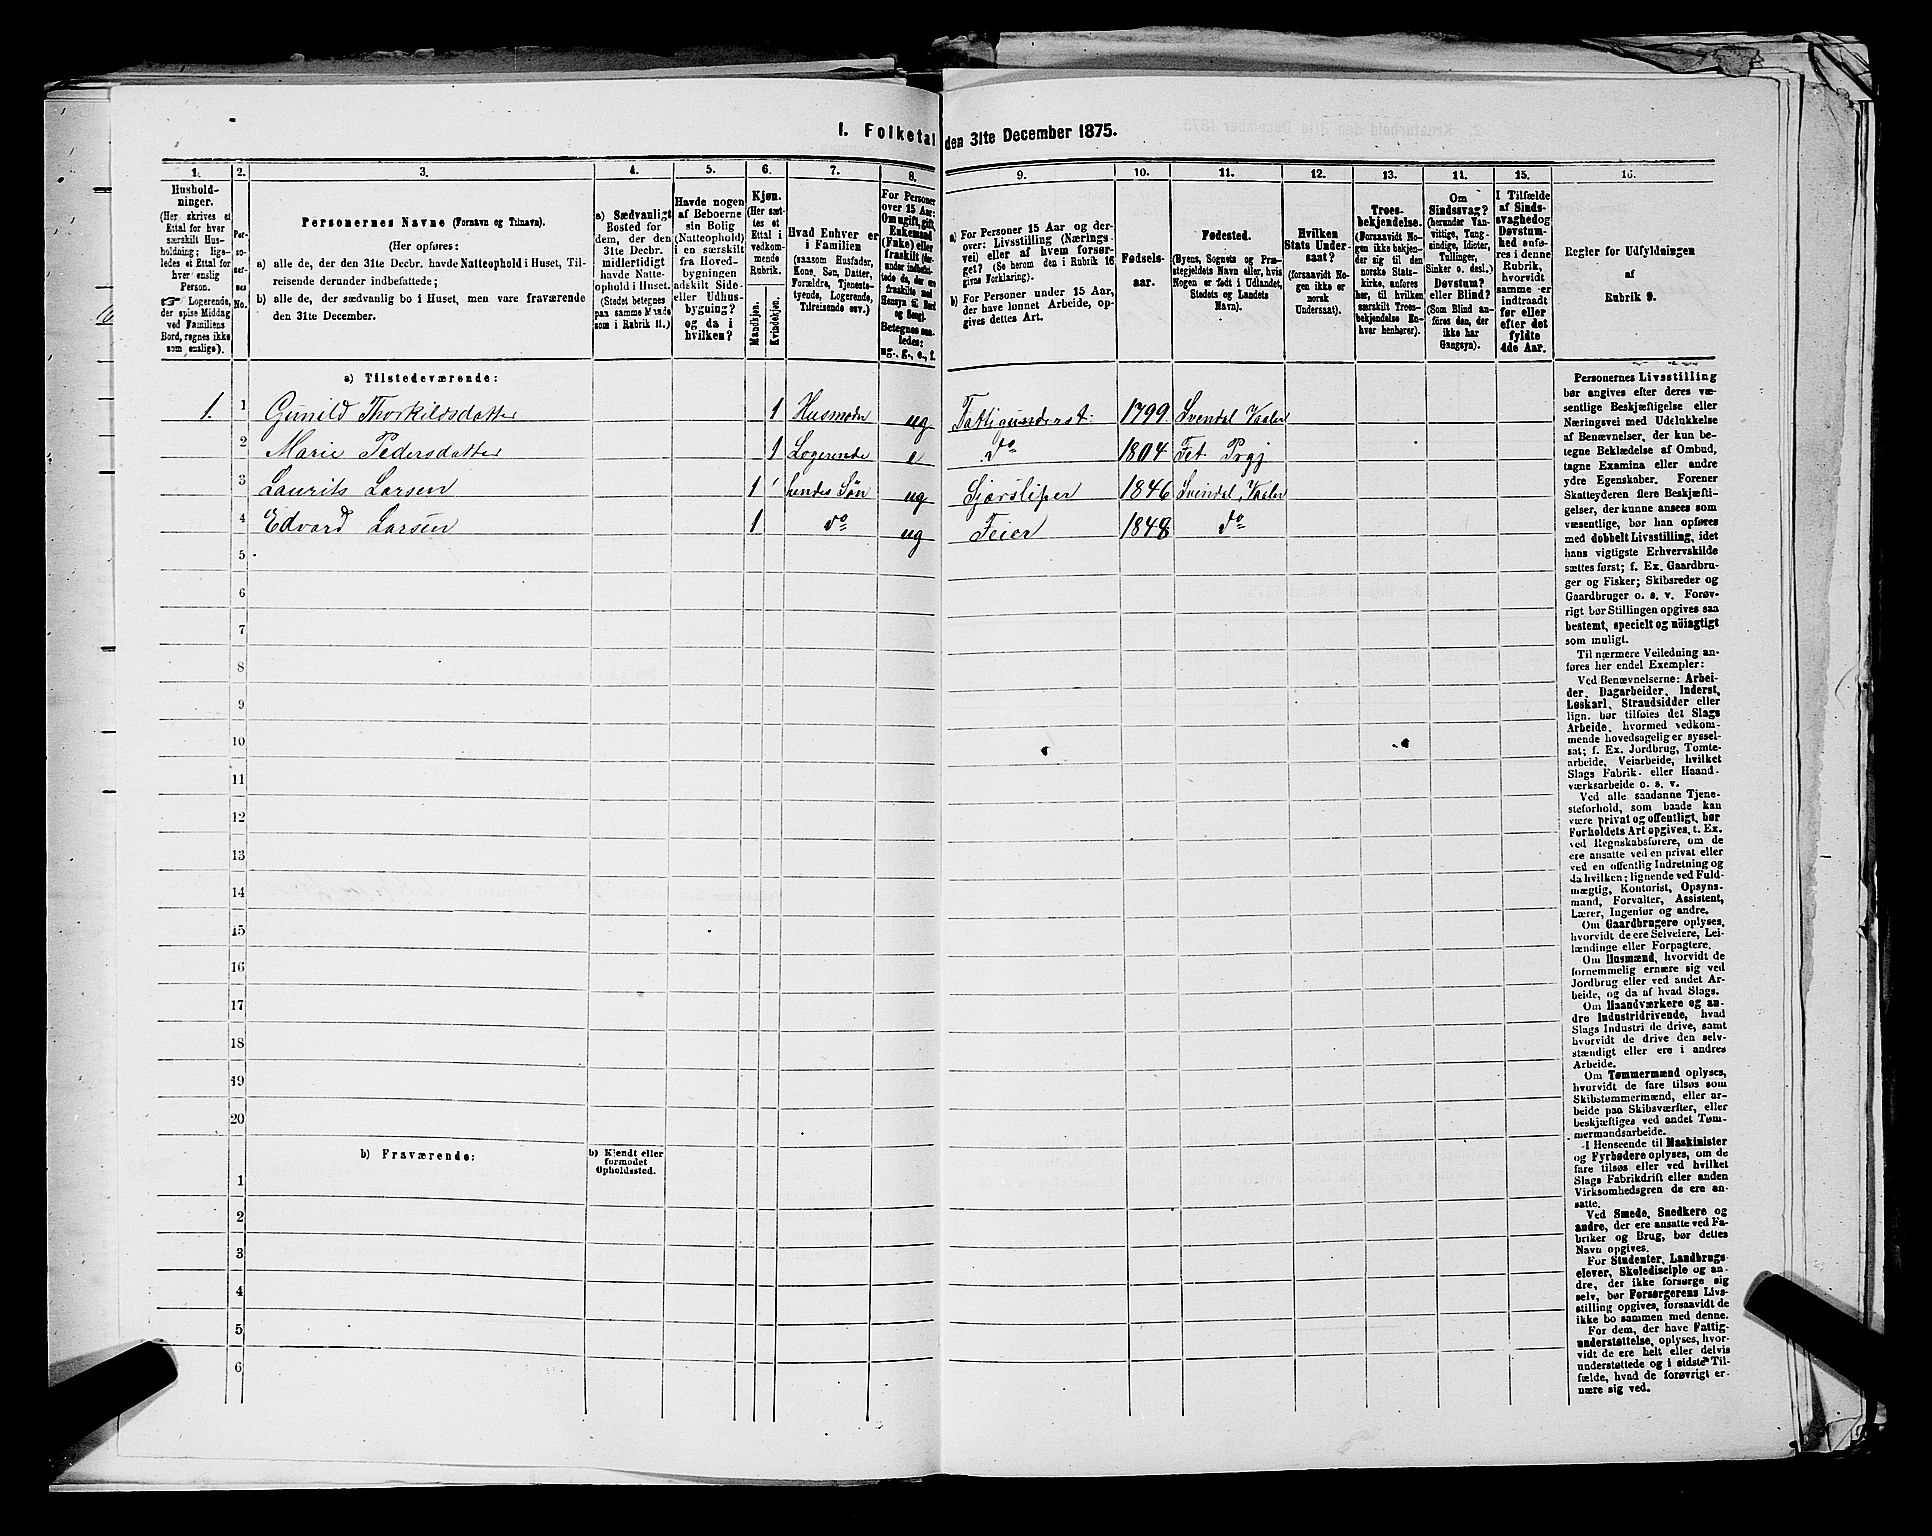 1. Folketal den 31te December 1875.
1. 2. 3. 4. 5. 6. 7. 8. 9. 10. 11. 12. 13. 14. 15. 16.
Hushold-
ninger.
(Her skrives et
Ettal for hver
særskilt Hus-
holdning; lige-
ledes et Ettal for
hver enslig
Person.
☞ Logerende,
der spise Middag
ved Familiens
Bord, regnes ikke
som enslige).
Per-
so-
ner-
nes
No.
Personernes Navne (Fornavn og Tilnavn).
(Her opføres:
a) alle de, der den 31te Decbr. havde Natteophold i Huset, Til-
reisende derunder indbefattede;
b) alle de, der sædvanlig bo i Huset, men vare fraværende
den 31te December.
a) Sædvanligt
Bosted for
dem, der den
31te Decbr.
midlertidigt
havde Natte-
ophold i Huset.
(Stedet betegnes
paa samme Maade
som i Rubrik 11.)
Havde nogen
af Beboerne
sin Bolig
(Natteophold)
i en særskilt
fra Hoved-
bygningen
adskilt Side-
eller Udhus-
bygning?
og da i
hvilken?
Kjøn.
(Her sæt-
tes et
Ettal i
vedkom-
mende
Rubrik.
Mandkjøn.
Kvindekjøn.
Hvad Enhver er
i Familien
(saasom Husfader,
Kone, Søn, Datter,
Forældre, Tjeneste-
tyende, Logerende,
Tilreisende osv.)
For Personer
over 15 Aar:
Om ugift, gift,
Enkemand
(Enke) eller
fraskilt
Betegnes saa-
ledes:
ug., g., e., f.
a) For Personer 15 Aar og der-
over: Livsstilling (Nærings-
vei) eller af hvem forsør-
get? (Se herom den i Rubrik 16
givne Forklaring).
b) For Personer under 15 Aar,
der have lønnet Arbeide, op-
gives dettes Art.
Fødsels-
aar.
Fødested.
(Byens, Sognets og Præ-
stegjeldets Navn eller, hvis
Nogen er født i Udlandet,
Stedets og Landets
Navn).
Hvilken
Stats Under-
saat?
(forsaavidt No-
gen ikke er
norsk
Undersaat).
Troes-
bekjendelse.
(Forsaavidt No-
gen ikke bekjen-
der sig til den
norske Stats-
kirke, anføres
her, til hvilken
særskilt Troes-
bekjendelse En-
hver henhører).
Om
Sindssvag?
(herunder Van-
vittige, Tung-
sindige, Idioter,
Tullinger,
Sinker o. desl.)
Døvstum?
eller Blind?
(Som Blind an-
føres den, der
ikke har
Gangsyn).
I Tilfælde
af Sinds-
svaghed og
Døvstum-
hed anfø-
res i denne
Rubrik,
hvorvidt
samme er
indtraadt
før eller
efter det
fyldte
4de Aar.
Regler for Udfyldningen
af
Rubrik 9.
a) Tilstedeværende:
1. 1 Gunild Thorkildsdatter 1 Husmoder ug Fattigunderst: 1799 Svendal Vaaler
2 Marie Pedersdatter 1 Logerende e do 1804 Fet Prgj
3 Laurits Larsen 1 hendes Søn ug Gjørsliper 1846 Svindal, Vaaler
4 Edvard Larsen 1 do ug Feier 1848 do
5
6
7
8
9
10
11
12
13
14
15
16
17
18
19
20
b) Fraværende:
b) Kjendt eller
formodet
Opholdssted.
1
2
3
4
5
6
Personernes Livsstilling
bør angives efter deres væ-
sentlige Beskjæftigelse eller
Næringsvei med Udelukkelse
af Benævnelser, der kun be-
tegne Beklædelse af Ombud,
tagne Examina eller andre
ydre Egenskaber. Forener
Skatteyderen flere Beskjæfti-
gelser, der kunne ansees som
væsentlige, bør han opføres
med dobbelt Livsstilling, idet
hans vigtigste Erhvervskilde
sættes først; f. Ex. Gaardbru-
ger og Fisker; Skibsreder og
Gaardbruger o. s. v. Forøv-
rigt bør Stillingen opgives saa
bestemt, specielt og nöiagtigt
som muligt.
Til nærmere Veiledning an-
føres her endel Exempler:
Ved Benævnelserne: Arbei-
der, Dagarbeider, Inderst,
Løskarl, Strandsidder eller
lign. bør tilføies det Slags
Arbeide, hvormed vedkom-
mende hovedsagelig er syssel-
sat; f. Ex. Jordbrug, Tomte-
arbeide, Veiarbeide, hvilket
Slags Fabrik- eller Haand-
værksarbeide o. s. v.
Ved alle saadanne Tjene-
steforhold, som baade kan
være privat og offentligt, bør
Forholdets Art opgives, t. Ex.
ved Regnskabsførere, om de
ere ansatte ved en privat eller
ved en offentlig Indretning og
da hvilken; lignende ved Fuld-
mægtig, Kontorist, Opsyns-
mand, Forvalter, Assistent,
Lærer, Ingeniør og andre.
Om Gaardbrugere oplyses,
hvorvidt de ere Selveiere, Lei-
lændinge eller Forpagtere.
Om Husmænd, hvorvidt de
fornemmelig ernære sig ved
Jordbrug eller ved andet Ar-
beide, og da af hvad Slags.
Om Haandværkere og an-
dre Industridrivende, hvad
Slags Industri de drive, samt
hvorvidt de drive den selv-
stændigt eller ere i andres
Arbeide.
Om Tømmermænd oplyses,
hvorvidt de fare tilsøs som
Skibstømmermænd, eller ar-
beide paa Skibsværfter, eller
beskjæftiges ved andet Tøm-
mermandsarbeide.
I Henseende til Maskinister
og Fyrbødere oplyses, om de
fare tilsøs eller ved hvilket
Slags Fabrikdrift eller anden
Virksomhedsgren de ere an-
satte.
Ved Smede, Snedkere og
andre, der ere ansatte ved Fa-
briker og Brug, bør dettes
Navn opgives.
For Studenter, Landbrugs-
elever, Skoledisciple og an-
dre, der ikke forsørge sig
selv, bør Forsørgerens Livs-
stilling opgives, forsaavidt de
ikke bo sammen med denne.
For dem, der have Fattig-
understøttelse, oplyses, hvor-
vidt de ere helt eller delvis
understøttede og i sidste Til-
fælde, hvad de forøvrigt er-
nære sig ved.